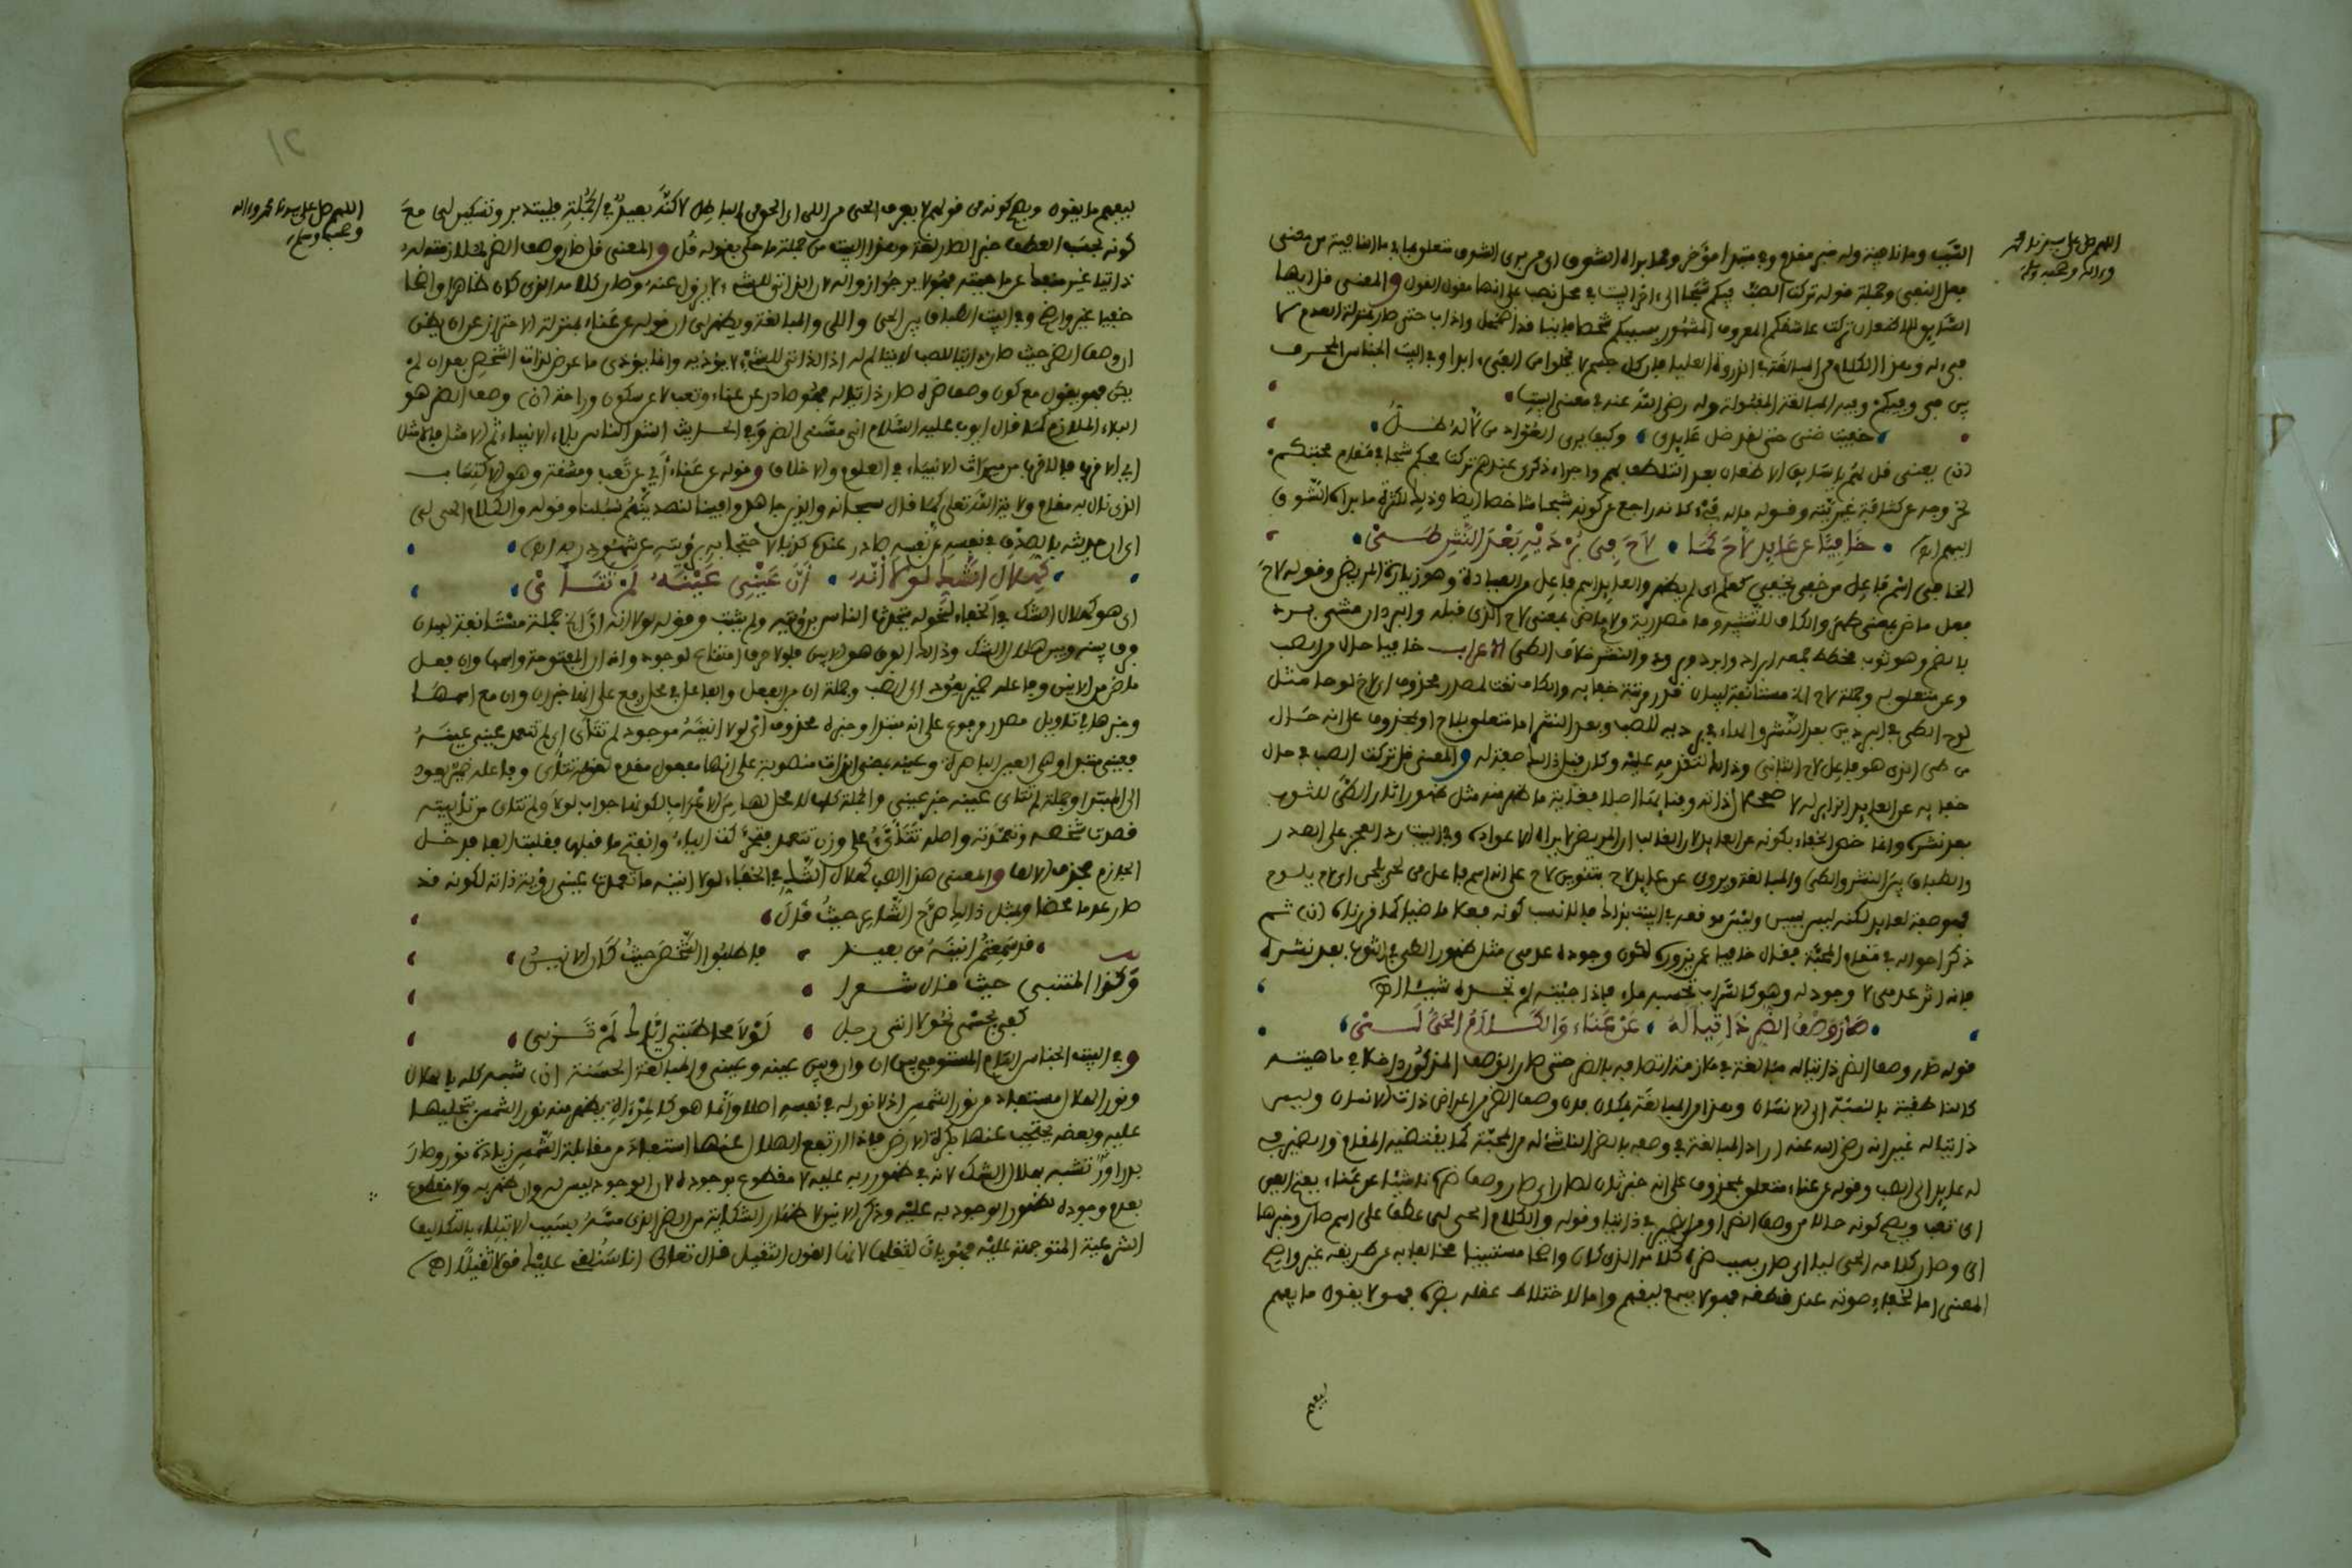 اللهم صل على سيدنا محمد
وءاله وصحبه وسلم
السبب وما نافية وله خبر مقدم وفي مبتدأ مؤخر ومما براه الشوق اي من برى الشوق متعلق بما في ما النافية من معنى
فعل النفي وجملة قوله تركت الصب فيكم شبحا الى اخر البيت في محل نصب على انها مقول القول والمعنى قل ايها
السايق للاضعان تركت عاشقكم المعروف المشهور بسببكم شخصا فانيا قد اضمحل وذاب حتى صار بمنزلة العدم لا
فيء له وهذا الكلام من المبالغة في الذروة العليا فان كل جسم لا يخلو من الفيء ابدا وفي البيت الجناس المحرف
بين في وفيكم وفيه المبالغة المقبولة وله رضي الله عنه في معنى البيت
خفيت ضنى حتى لقد ضل عايدي وكيف يرى العواد من لا له ظل
(ن) يعني قل لهم يا سايق الاظعان بعد التلطف بهم واجراء ذكري عندهم تركت محبكم شبحا في مقام محبتكم
لخروجه عن كثافة غيريته وقوله ما له فيء كانه راجع عن كونه شبحا شاخصا ايضا وذلك لكثرة ما براه الشوق
اليهم اهـ خَافِيًا عن عَايِدٍ لَاحَ كَمَا لَاحَ فِي بُرْدَيْهِ بَعْدَ النَّشْرِ طَيّ
الخافي اسم فاعل من خفي يخفى كعلم اي لم يظهر والعايد اسم فاعل من العيادة وهو زيارة المريض وقوله لاح
فعل ماض بمعنى ظهر والكاف للتشبيه وما مصدرية ولاح ماض بمعنى لاح الذي قبله والبردان مثنى برد
بالضم وهو ثوب مخطط جمعه ابراد وابرد وبرود والنشر خلاف الطي الاعراب خافيا حال من الصب
وعن متعلق به وجملة لاح الخ مستانفة لبيان قدر مرتبة خفايه والكاف نعت لمصدر محذوف اي لاح لوحا مثل
لوح الطي في البردين بعد النشر والهاء في برديه للصب وبعد النشر اما متعلق بلاح او بمحذوف على انه حال
من طي الذي هو فاعل لاح الثاني وذلك لتقدمه عليه وكان قبل ذلك صفة له والمعنى قل تركت الصب في حال
خفايه عن العايد الزاير له لا
بعد نشره وانما خص الخفاء بكونه عن العايد لان الغالب ان المريض لا يراه الا عواده وفي البيت رد العجز على الصدر
والطباق بين النشر والطي والمبالغة ويروى عن عايد لاح بتنوين لاح على انه اسم فاعل من لحى يلحى اي لام يلوم
فهو صفة لعايد لكنه ليس
ذكر احواله في مقام المحبة فقال خافيا عمن يزوره لكون وجوده عدمي مثل ظهور الطي في الثوب بعد نشره
فانه اثر عدمي لا وجود له وهو كالسراب تحسبه ماء فاذا جئته لم تجده شيئا اهـ
صَارَ وَصْفُ الضُّرِّ ذَاتِيًّا لَهُ عَنْ عَنَاءٍ وَالْكَلَامُ الْحَيُّ لَيّ
قوله صار وصف الضر ذاتيا له مبالغة في ملازمة اتصافه بالضر حتى صار الوصف المذكور داخلا في ماهيته
كالناطقية بالنسبة الى الانسان وهذا من المبالغة بمكان فان وصف الضر من اعراض ذات الانسان وليس
ذاتيا له غير انه رضي الله عنه اراد المبالغة في وصفه بالضر الناشئ له من المحبة كما يقتضيه المقام والضمير في
له عايد الى الصب وقوله عن عناء متعلق بمحذوف على انه خبر ثان لصار اي صار وصف ضره ناشئا عن عناء بفتح العين
اي تعب ويصح كونه حالا من وصف الضر او من الضمير في ذاتيا وقوله والكلام الحي لي عطف على اسم صار وخبرها
اي وصار كلامه الحي ليا اي صار بسبب ضره كلامه الذي كان واضحا مستبينا مخالفا به عن طريقه غير واضح
المعنى اما لخفاء صوته عند نطقه فهو لا يسمع ليفهم واما لاختلاط عقله بضره فهو لا يقول ما يفهم
ليفهم
١٢
اللهم صل على سيدنا محمد وءاله
وصحبه وسلم
ليفهم ما يقول ويصح كونه من قولهم لا يعرف الحي من اللي اي الحق من الباطل لاكنه بعيد في الجملة فليتدبر وتسكين لي مع
كونه بحسب العطف خبر الصار لغة وهذا البيت من جملة ما حكي بقوله قل والمعنى قل صار وصف الضر له لملازمته له
ذاتيا غير منفصل عن ماهيته فهو لا يرجو زواله لان الذاتي للشيء لا يزول عنه وصار كلامه الذي كان ظاهرا واضحا
خفيا غير واضح وفي البيت الطباق بين الحي واللي والمبالغة ويظهر لي ان قوله عن عناء بمنزلة الاحتراز عن ان يظن
ان وصف الضر حيث صار ذاتيا للصب لا يتالم له اذ الذاتي للشيء لا يؤذيه وانما يؤذي ما عرض لذات الشخص بعد ان لم
يكن فهو يقول مع كون وصف ضره صار ذاتيا له فهو صادر عن عناء وتعب لا عن سكون وراحة (ن) وصف الضر هو
البلاء الملازم كما قال ايوب عليه السلام اني مسني الضر وفي الحديث اشد الناس بلاء الانبياء ثم الامثل فالامثل
اي الاقرب فالاقرب من ميراث الانبياء في العلوم والاخلاق وقوله عن عناء أي عن تعب ومشقة وهو الاكتساب
الذي نال به مقام ولاية الله تعلى كما قال سبحانه والذين جاهدوا فينا لنهدينهم سبلنا وقوله والكلام الحي لي
اي ان حديثه بالصدق في نفسه عن نفسه صادر عنده كذبا لاحتجابه برؤيته عن شهود ربه اهـ
كَهِلَالِ الشَّكِّ لَوْلَا أَنَّهُ أَنَّ عَيْنِي عَيْنَهُ لَمْ تَتَأَيّ
اي هو كهلال الشك في الخفاء لنحوله يتحدث الناس برؤيته ولم يثبت وقوله لولا انه أن الخ جملة مستانفة لبيان
فرق بينه وبين هلال الشك وذلك الفرق هو الانين فلولا حرف امتناع لوجود وانه ان المفتوحة واسمها وان فعل
ماض من الانين وفاعله ضمير يعود الى الصب وجملة ان من الفعل والفاعل في محل رفع على انها خبر ان وان مع اسمها
وخبرها في تاويل مصدر مرفوع على انه مبتدا وخبره محذوف اي لولا انينه موجود لم تتاي اي لم تتعمد عيني عينه
فعيني مبتدا وهي العين الباصرة وعينه بمعنى الذات منصوبة على انها مفعول مقدم لقوله تتاي وفاعله ضمير يعود
الى المبتدا وجملة لم تتاي عينه خبر عيني والجملة كلها لا محل لها من الاعراب لكونها جواب لولا ولم تتاي من تأييته
قصدت شخصه وتعمدته
الجازم بحذف الالف والمعنى هذا الصب كهلال الشك في الخفاء لولا انينه ما تعمدت عيني رؤية ذاته لكونه قد
صار عدما محضا وبمثل ذلك صرح الشاعر حيث قال
قد سمعتم انينه من بعيد فاطلبوا الشخص حيث كان الانين
وكذا المتنبي حيث قال شعرا
كفى بجسمي نحولا انني رجل لَوْلَا مخاطبتي إيّاك لَمْ تَرَني
وفي البيت الجناس التام المستوفى بين ان وان وبين عينه وعيني والمبالغة الحسنة (ن) شبه كله بالهلال
ونور الهلال مستفاد من نور الشمس اذ لا نور له في نفسه اصلا وانما هو كالمرءاة يظهر منه نور الشمس بتجليها
عليه وبعضه يحتجب عنها بكرة الارض فاذا ارتفع الهلال عنها استفاد من مقابلة الشمس زيادة نور وصار
بدرا وتشبه بهلال الشك لانه في ظهور ربه عليه لا مقطوع بوجوده لان الوجود ليس له وان ظهر به ولا مقطوع
بعدم وجوده لظهور الوجود به عليه وذكر الانين لاظهار الشكاية من الضر الذي مسه بسبب الابتلاء بالتكاليف
الشرعية المتوجهة عليه فهو يان لثقلها لانها القول الثقيل قال تعالى انا سنلقي عليك قولا ثقيلا اهـ